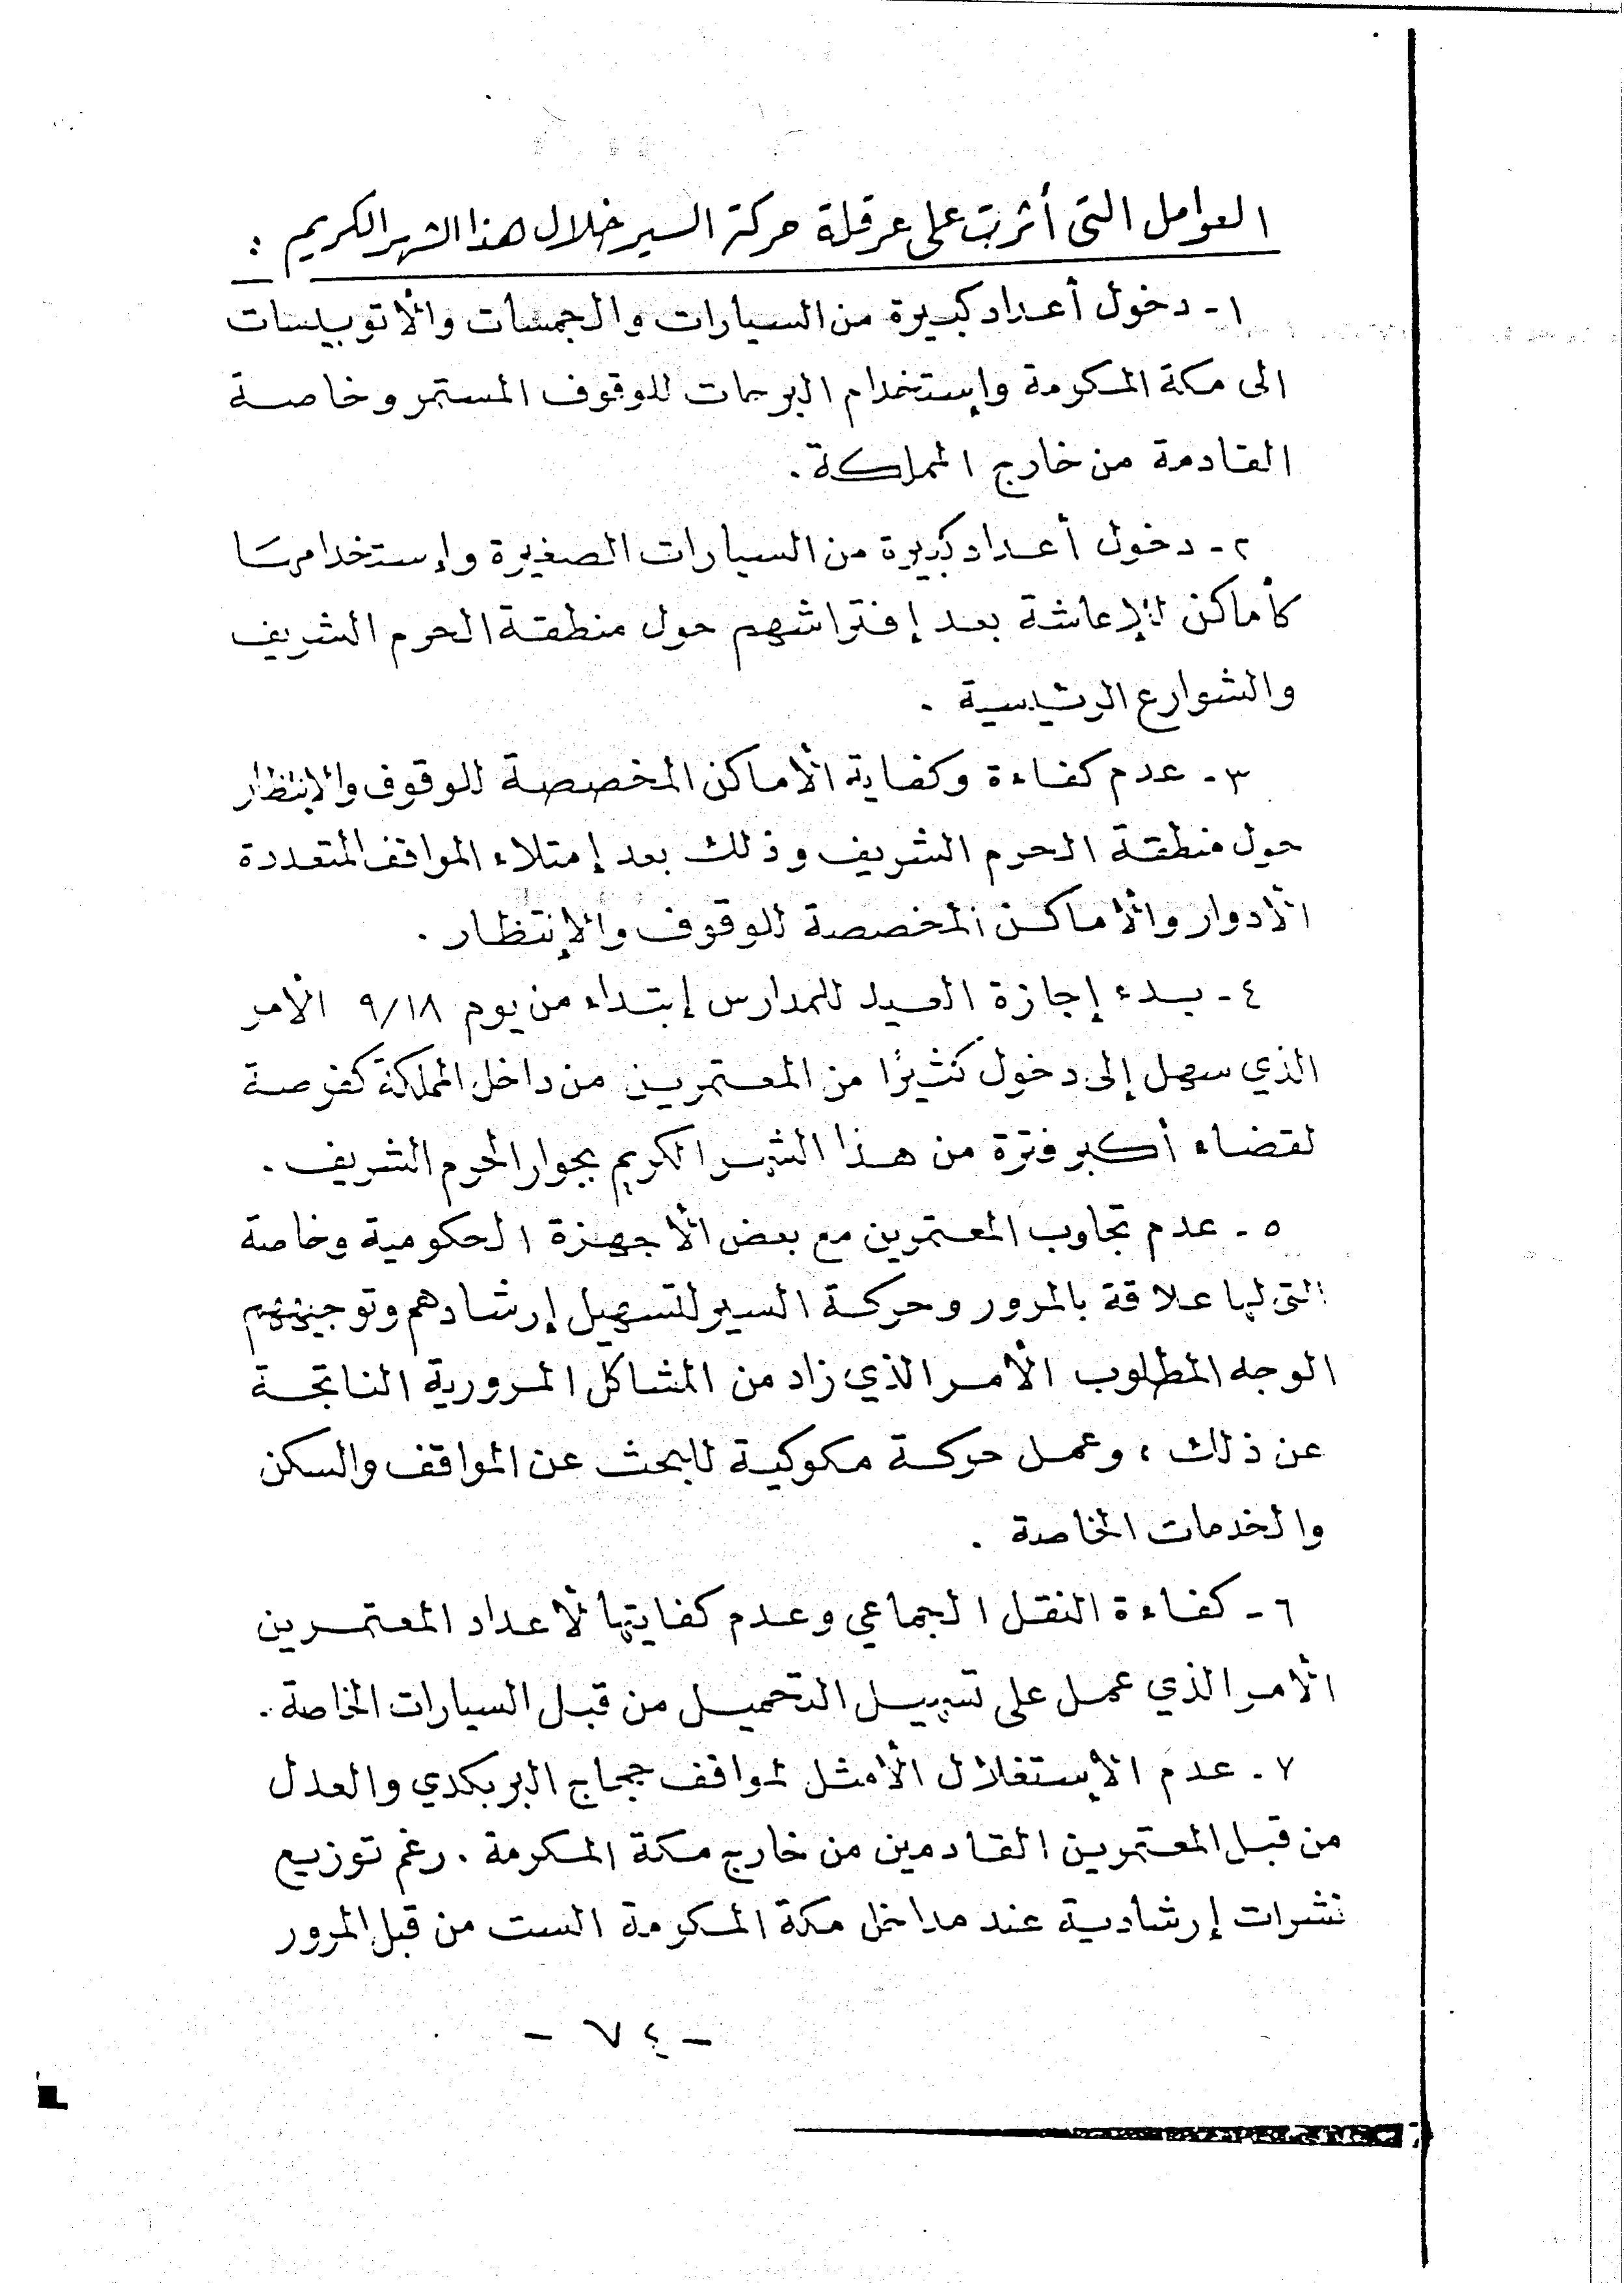 العوامل التى أثرت على عرقلة حركة السير خلال هذا الشهر الكريم :
١ - دخول أعداد كبيرة من السيارات والجمسات والأتوبيسات
الى مكة المكرمة وإستخدام البرحات للوقوف المستمر وخاصة
القادمة من خارج المملكة .
٢ - دخول أعداد كبيرة من السيارات الصغيرة وإستخدامها
كأماكن للإعاشة بعد إفتراشهم حول منطقة الحرم الشريف
والشوارع الرئيسية .
٣ - عدم كفاءة وكفاية الأماكن المخصصة للوقوف والإنتظار
حول منطقة الحرم الشريف وذلك بعد إمتلاء المواقف المتعددة
الأدوار والأماكن المخصصة للوقوف والإنتظار .
٤ - بدء إجازة العيد للمدارس إبتداء من يوم ٩/١٨ الأمر
الذي سهل إلى دخول كثيرًا من المعتمرين من داخل المملكة كفرصة
لقضاء أكبر فترة من هذا الشهر الكريم بجوار الحرم الشريف .
٥ - عدم تجاوب المعتمرين مع بعض الأجهزة الحكومية وخاصة
التى لها علاقة بالمرور وحركة السير لتسهيل إرشادهم وتوجيههم
الوجه المطلوب الأمر الذي زاد من المشاكل المرورية الناتجة
عن ذلك ، وعمل حركة مكوكية للبحث عن المواقف والسكن
والخدمات الخاصة .
٦ - كفاءة النقل الجماعي وعدم كفايتها لأعداد المعتمرين
الأمر الذي عمل على تسهيل التحميل من قبل السيارات الخاصة .
٧ - عدم الإستغلال الأمثل لمواقف حجاج البر بكدي والعدل
من قبل المعتمرين القادمين من خارج مكة المكرمة . رغم توزيع
نشرات إرشادية عند مداخل مكة المكرمة الست من قبل المرور
- ٧٤ -